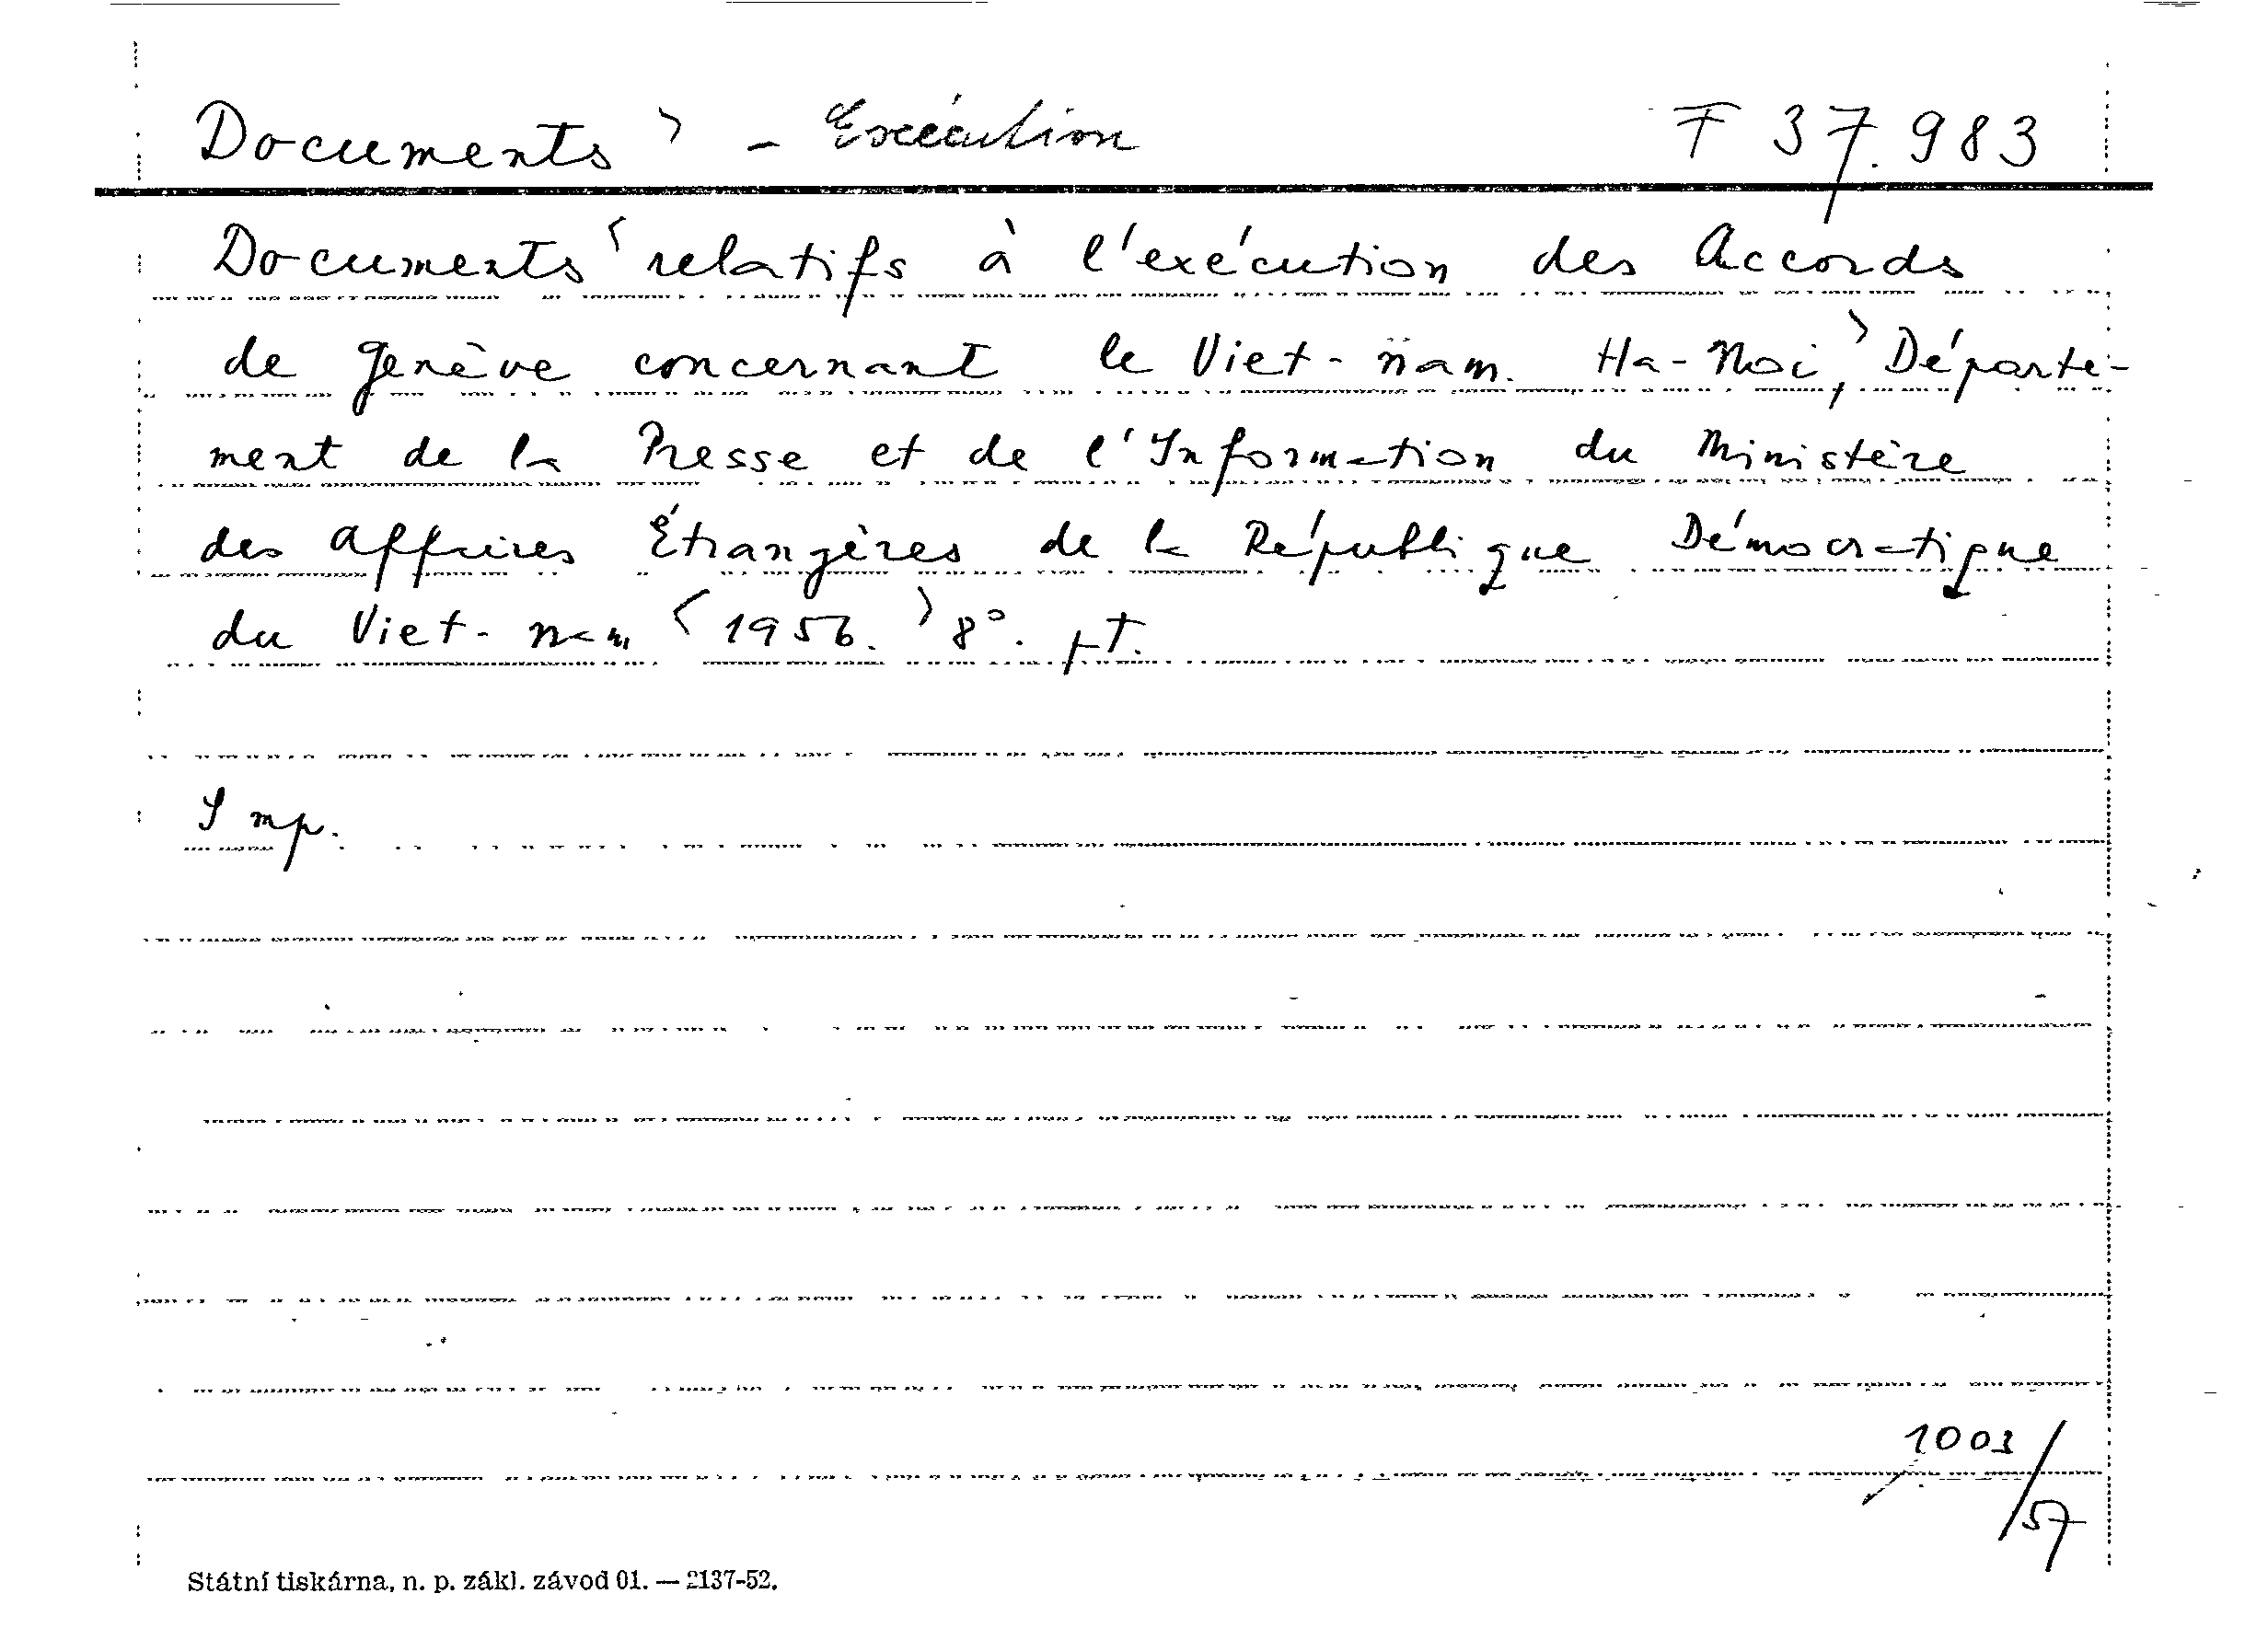 Documents > - Exécution F 37.983
Documents < relatifs à l'exécution des Accords
de Genève concernant le Viet-nam. Ha-Noi, > Départe-
ment de la Presse et de l'Information du Ministère
des Affaires Étrangères de la République Démocratique
du Viet-nam < 1956. > 8°. pt.
Imp.
1003/57
Státní tiskárna, n. p. zákl. závod 01. — 2137-52.